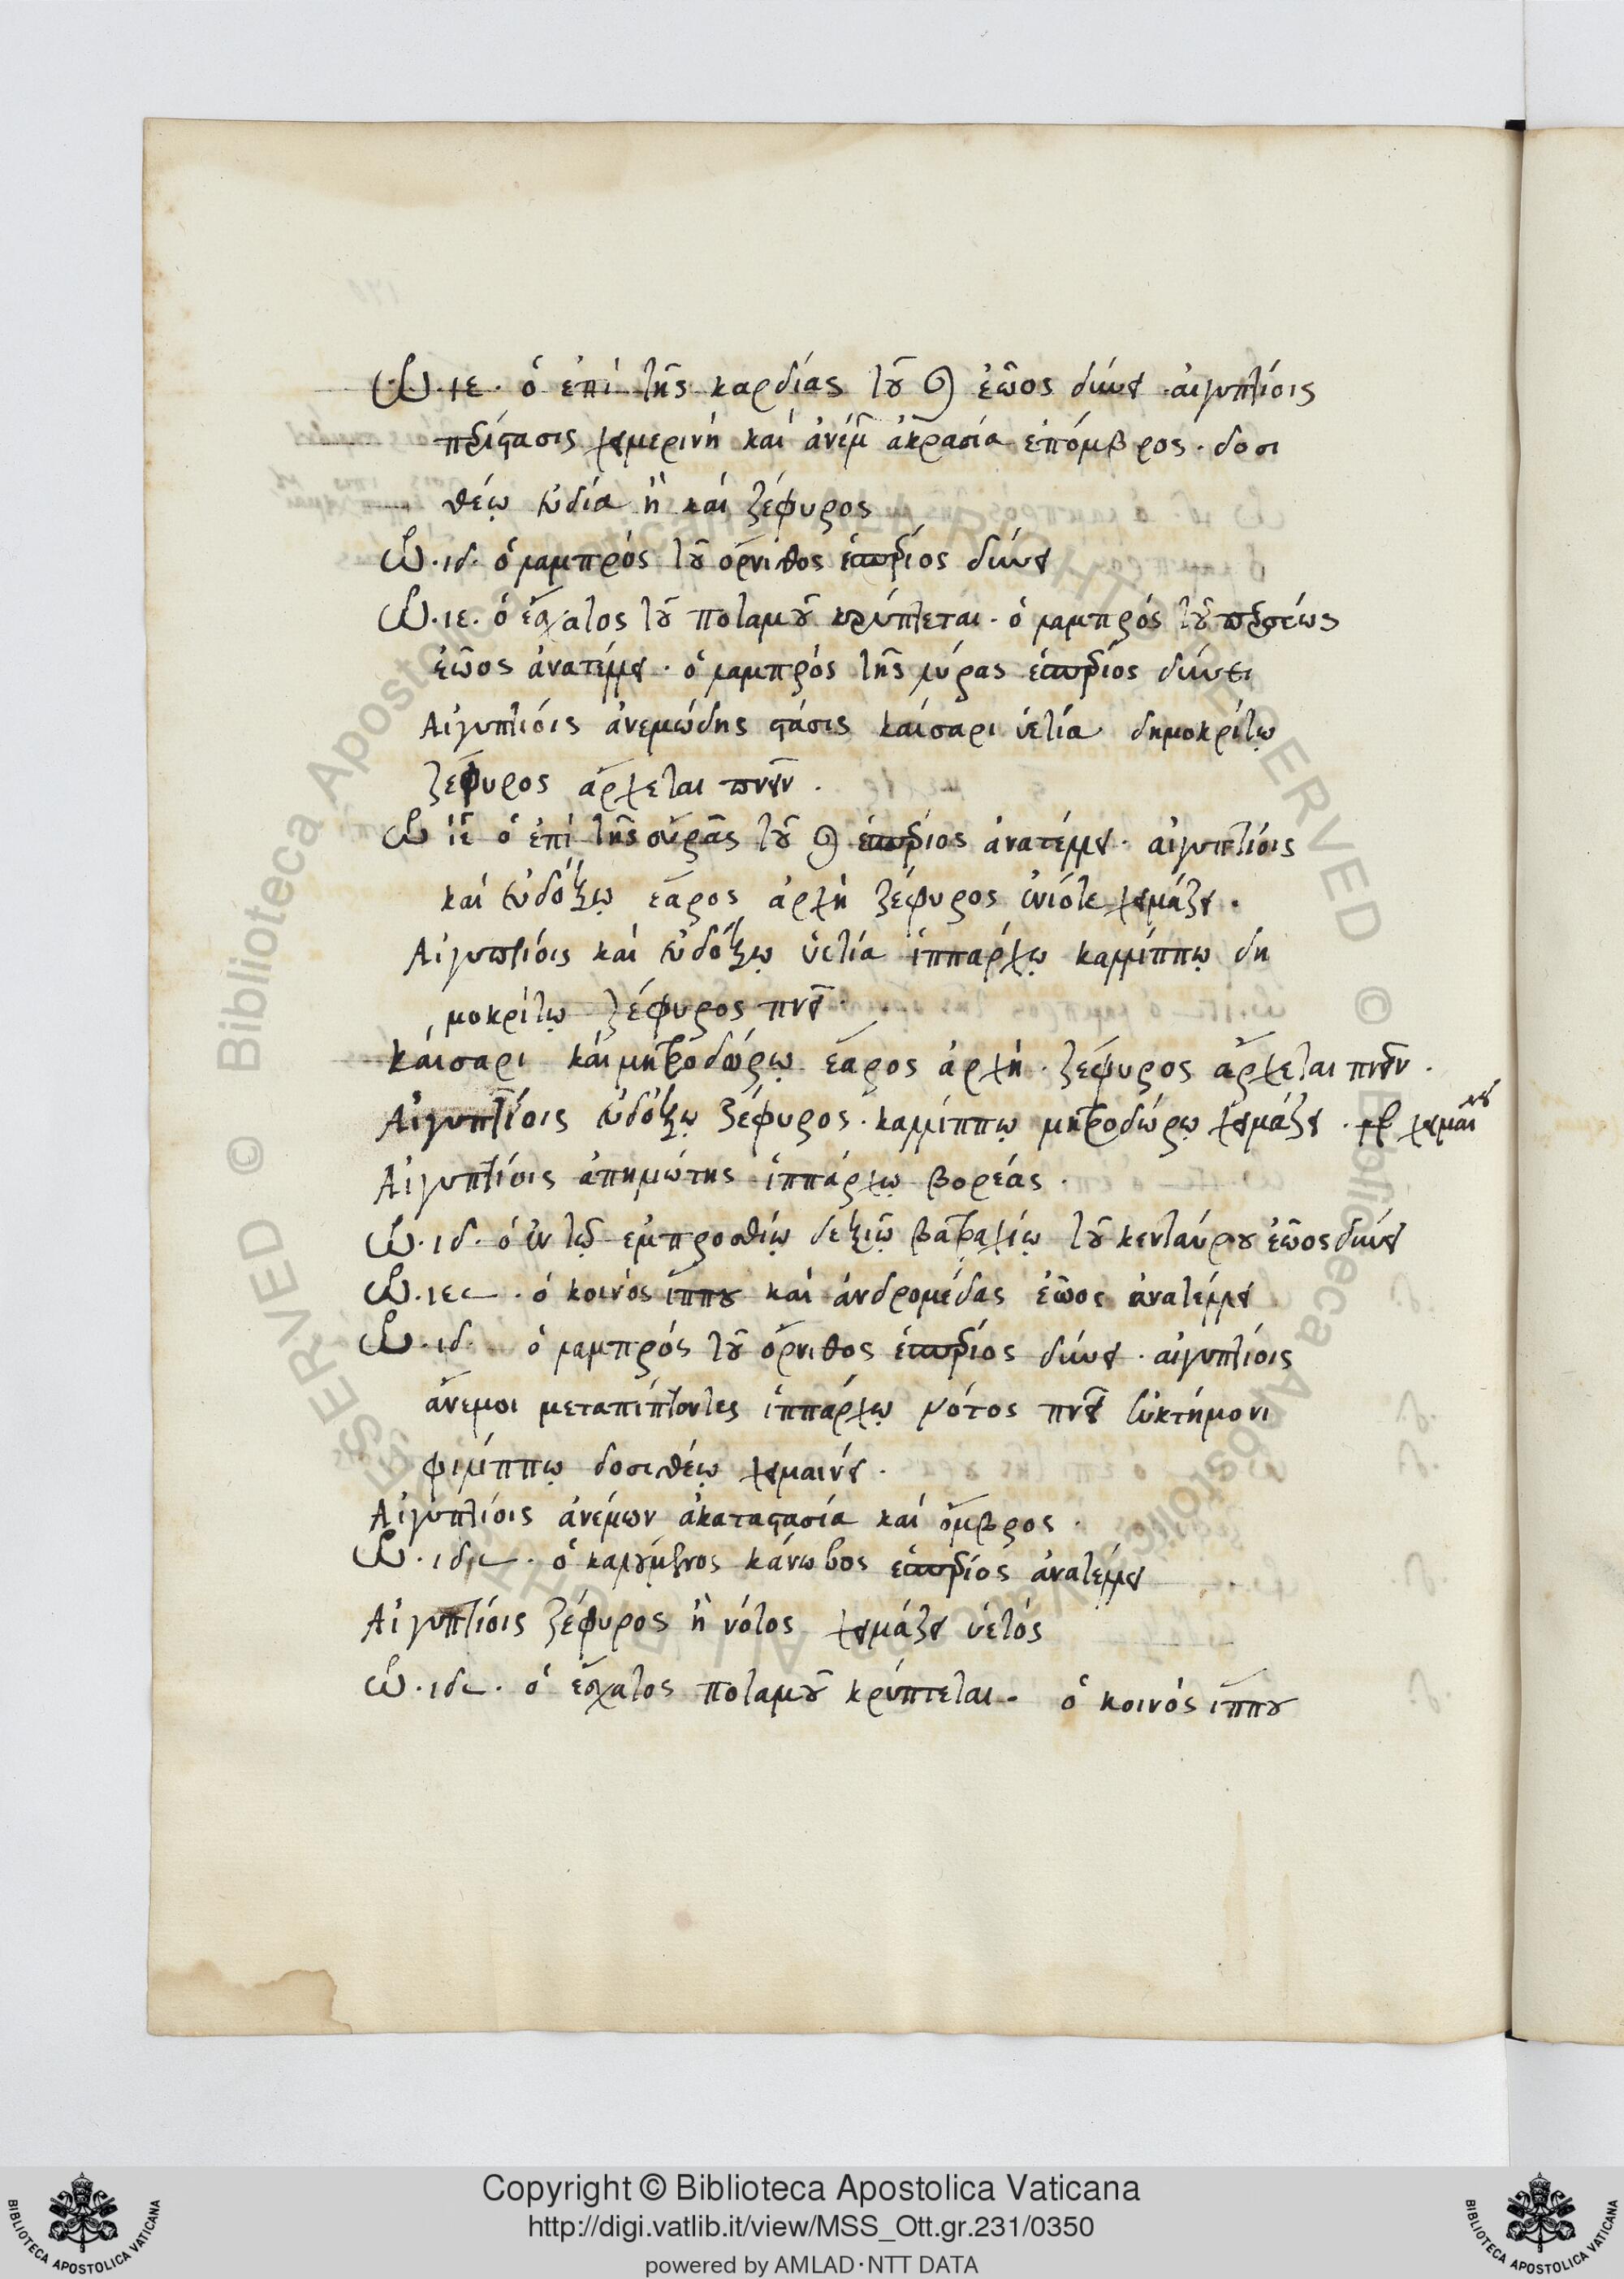 ὡ. ιε. ὁ ἐπὶ τῆς καρδίας τοῦ ♌ ἑῷος δύνει. αἰγυπτίοις
περίστασις χειμερινὴ καὶ ἀνέμ ἀκρασία ἐπόμβρος. δοσι
θέῳ εὐδία ἢ καὶ ζέφυρος
ὡ. ιδ. ὁ λαμπρὸς τοῦ ὄρνιθος ἑσπέριος δύνει
ὡ. ιε. ὁ ἔσχατος τοῦ ποταμοῦ κρύπτεται. ὁ λαμπρὸς τοῦ περσέως
ἑῷος ἀνατέλλει. ὁ λαμπρὸς τῆς λύρας ἑσπέριος δύνει
Αἰγυπτίοις ἀνεμώδης στάσις καίσαρι ὑετία δημοκρίτῳ
ζέφυρος ἄρχεται πνεῖν.
ὡ ιε ὁ ἐπὶ τῆς οὐρᾶς τοῦ ♌ ἑσπέριος ἀνατέλλει. αἰγυπτίοις
καὶ εὐδόξῳ ἔαρος ἀρχὴ ζέφυρος ἐνίοτε χειμάζει.
Αἰγυπτίοις καὶ εὐδόξῳ ὑετία ἱππάρχῳ καλλίππῳ δη
μοκρίτῳ ζέφυρος πνεῖ.
καίσαρι καὶ μητροδώρῳ ἔαρος ἀρχή. ζέφυρος ἄρχεται πνεῖν.
Αἰγυπτίοις εὐδόξῳ ζέφυρος. καλλίππῳ μητροδώρῳ χειμάζει. χειμαι νει
Αἰγυπτίοις ἀπηλιώτης ἱππάρχῳ βορέας.
ὡ. ιδ. ὁ ἐν τῷ ἐμπροσθίῳ δεξιῷ βατραχίῳ τοῦ κενταύρου ἑῷος δύνει
ὡ. ιε 𐅵. ὁ κοινὸς ἵππου καὶ ἀνδρομέδας ἑῷος ἀνατέλλει
ὡ. ιδ. ὁ λαμπρὸς τοῦ ὄρνιθος ἑσπέριος δύνει. αἰγυπτίοις
ἄνεμοι μεταπίπτοντες ἱππάρχῳ νότος πνεῖ εὐκτήμονι
φιλίππῳ δοσιθέῳ χειμαίνει.
Αἰγυπτίοις ἀνέμων ἀκαταστασία καὶ ὄμβρος.
ὡ. ιδ 𐅵. ὁ καλούμενος κάνωβος ἑσπέριος ἀνατέλλει
Αἰγυπτίοις ζέφυρος ἢ νότος χειμάζει ὑετός
ὡ. ιδ 𐅵. ὁ ἔσχατος ποταμοῦ κρύπτεται. ὁ κοινὸς ἵππου
Copyright © Biblioteca Apostolica Vaticana
http://digi.vatlib.it/view/MSS_Ott.gr.231/0350
powered by AMLAD·NTT DATA